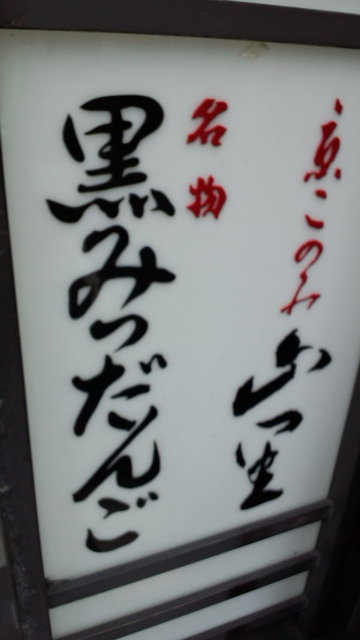 京このみ
名物
黒みつだんご